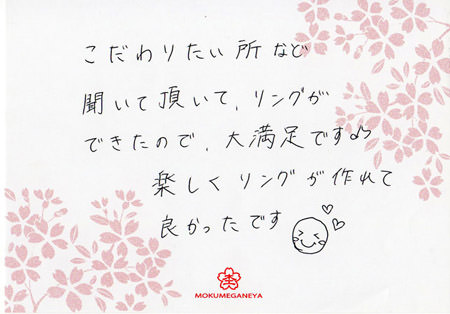 こだわりたい所など
聞いて頂いて、リングが
できたので、大満足です♪
楽しくリングが作れて
良かったです
MOKUMEGANEYA